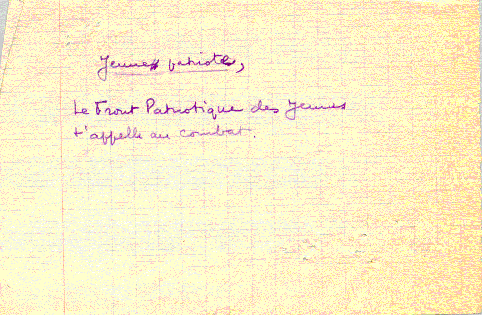 Jeune patriote,
Le Front Patriotique des Jeunes
t'appelle au combat.